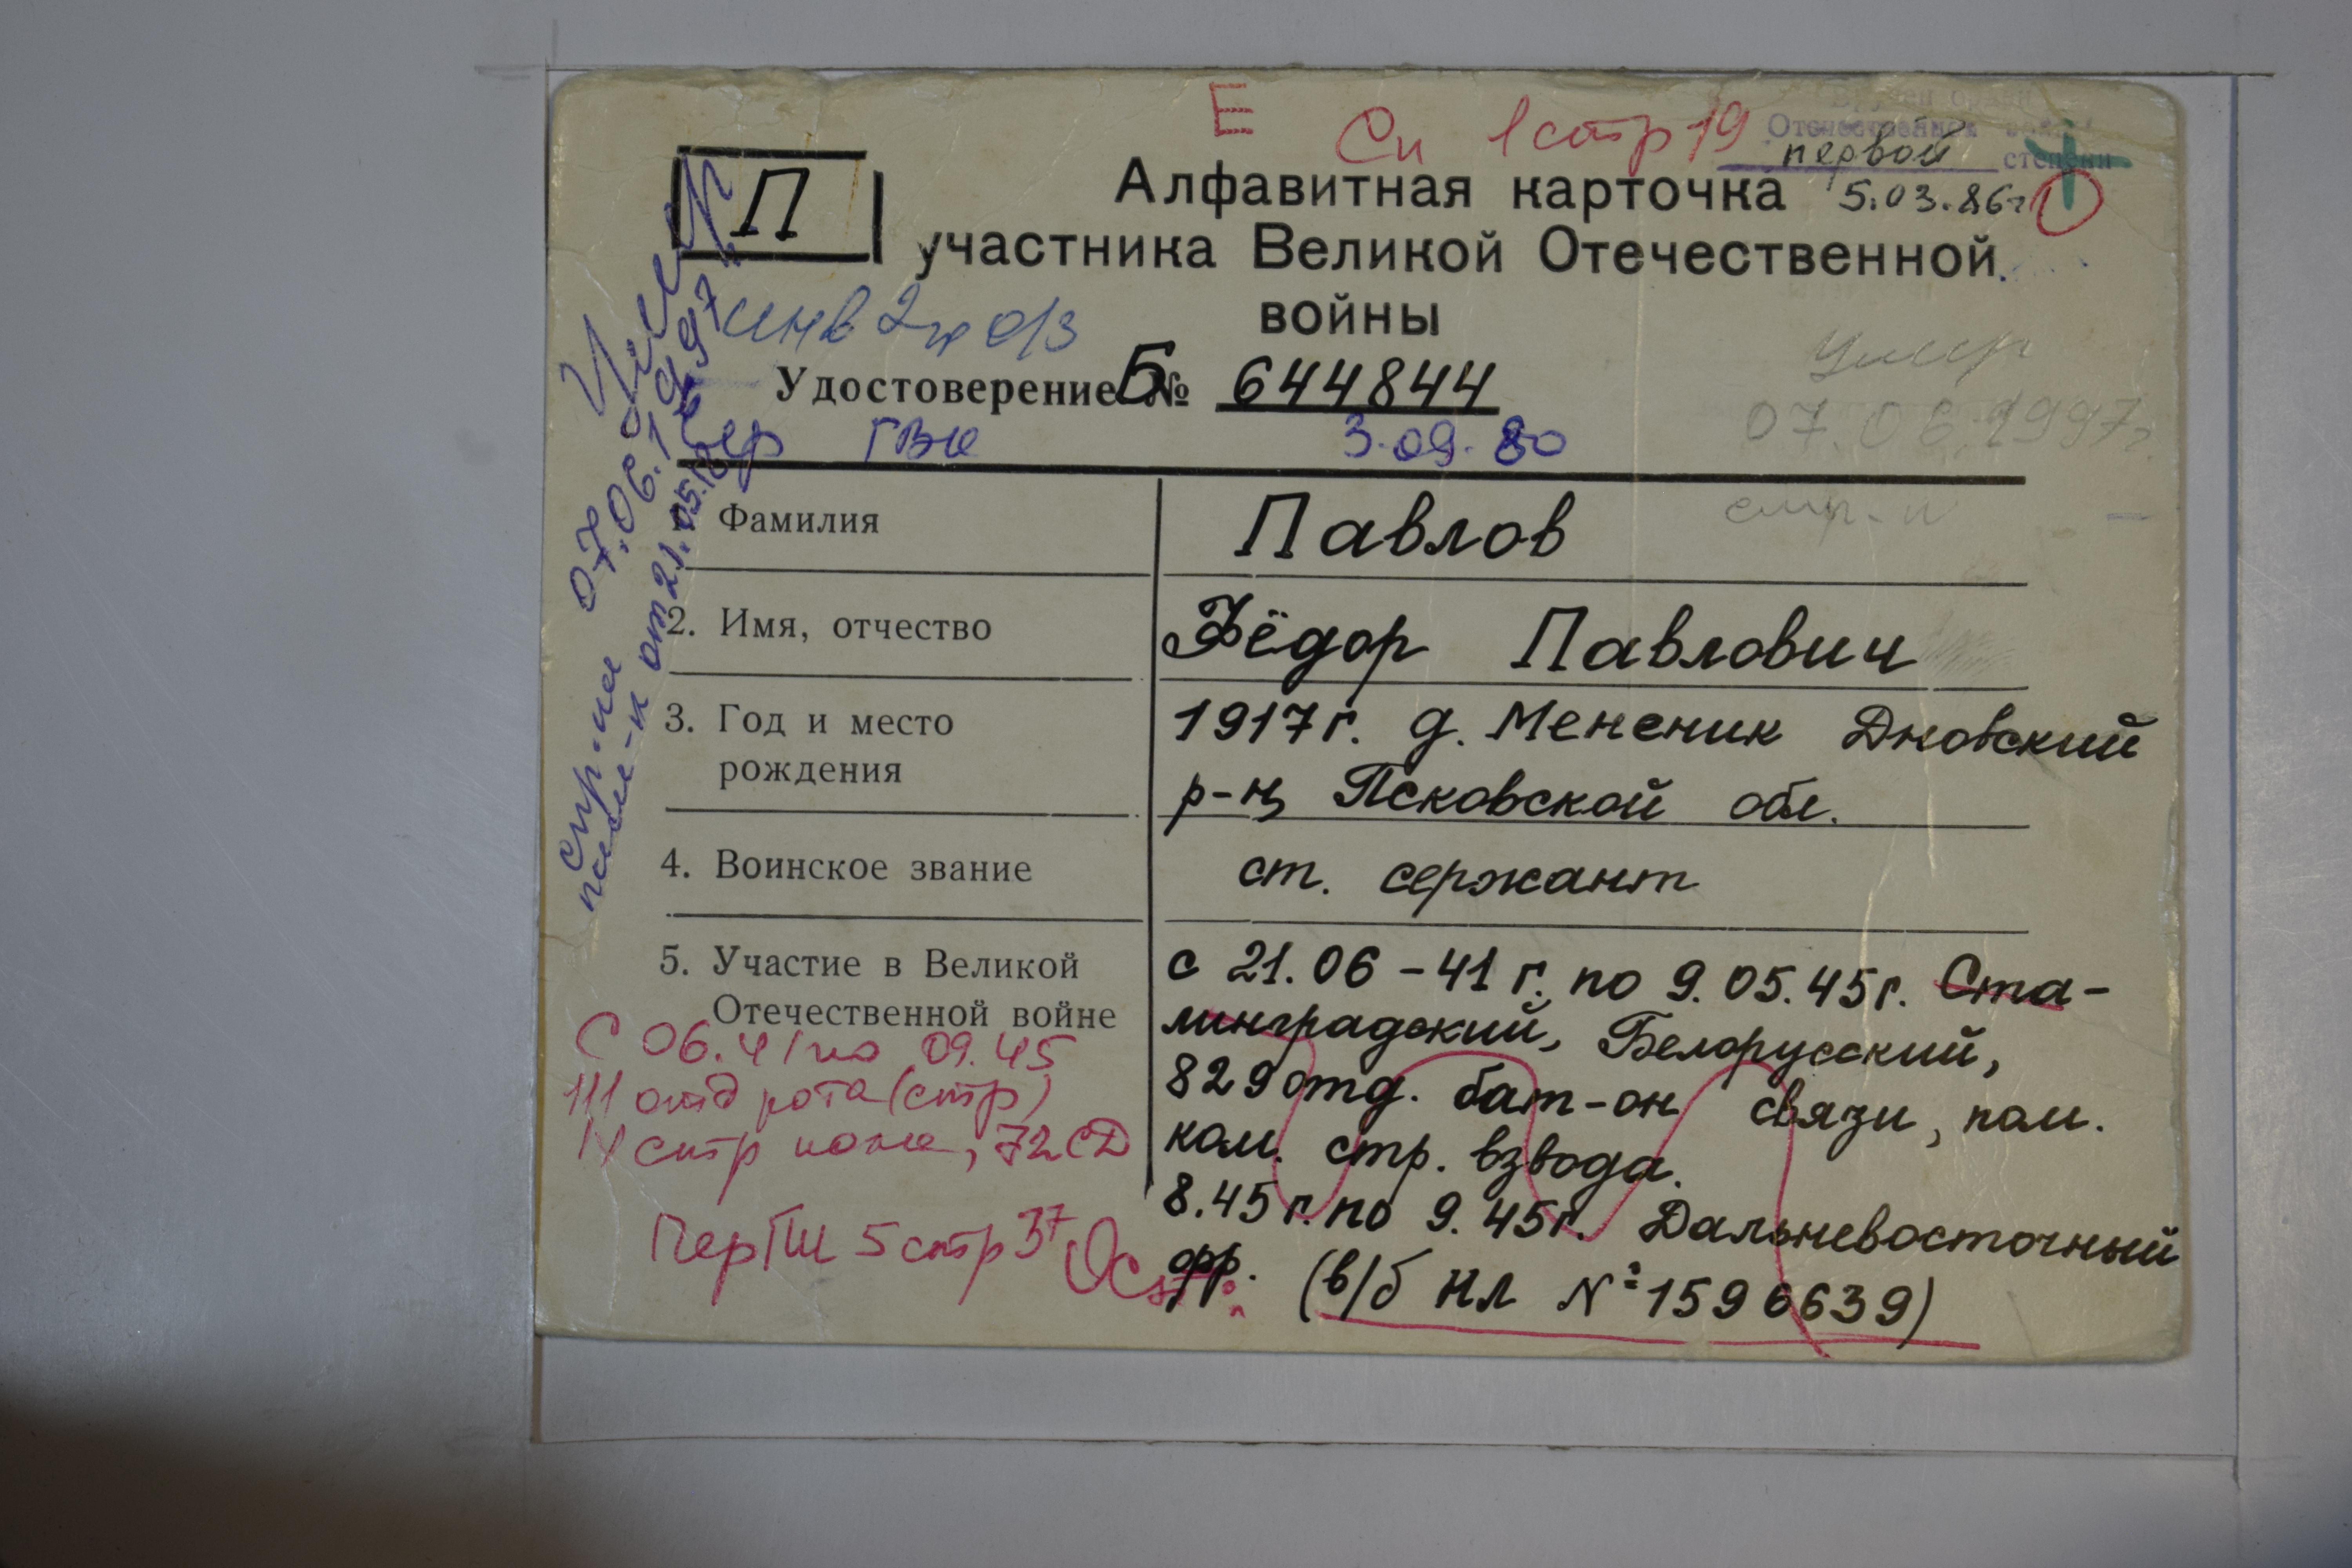 Е
Сп 1 стр 19
Отечественной войны
первой степени
5.03.86г
П
Алфавитная карточка
участника Великой Отечественной
войны
инв 2 гр о/з
Удостоверение Б № 644844
ГВК 3.09.80
Умер
07.06.1997г.
Умер
07.06.1997г
от 21.05.
Фамилия Павлов
2. Имя, отчество Фёдор Павлович
3. Год и место 1917г. д. Менсник Дновский
рождения р-н, Псковской обл.
4. Воинское звание ст. сержант
5. Участие в Великой с 21.06-41г. по 9.05.45г. Ста-
Отечественной войне линградский, Белорусский,
829 отд. бат-он связи, пом.
ком. стр. взвода.
8.45г. по 9.45г. Дальневосточный
фр. (в/б НЛ № 1596639)
С 06.41 по 09.45
111 отд рота (стр)
стр полка, 72 СД
5 стр 37